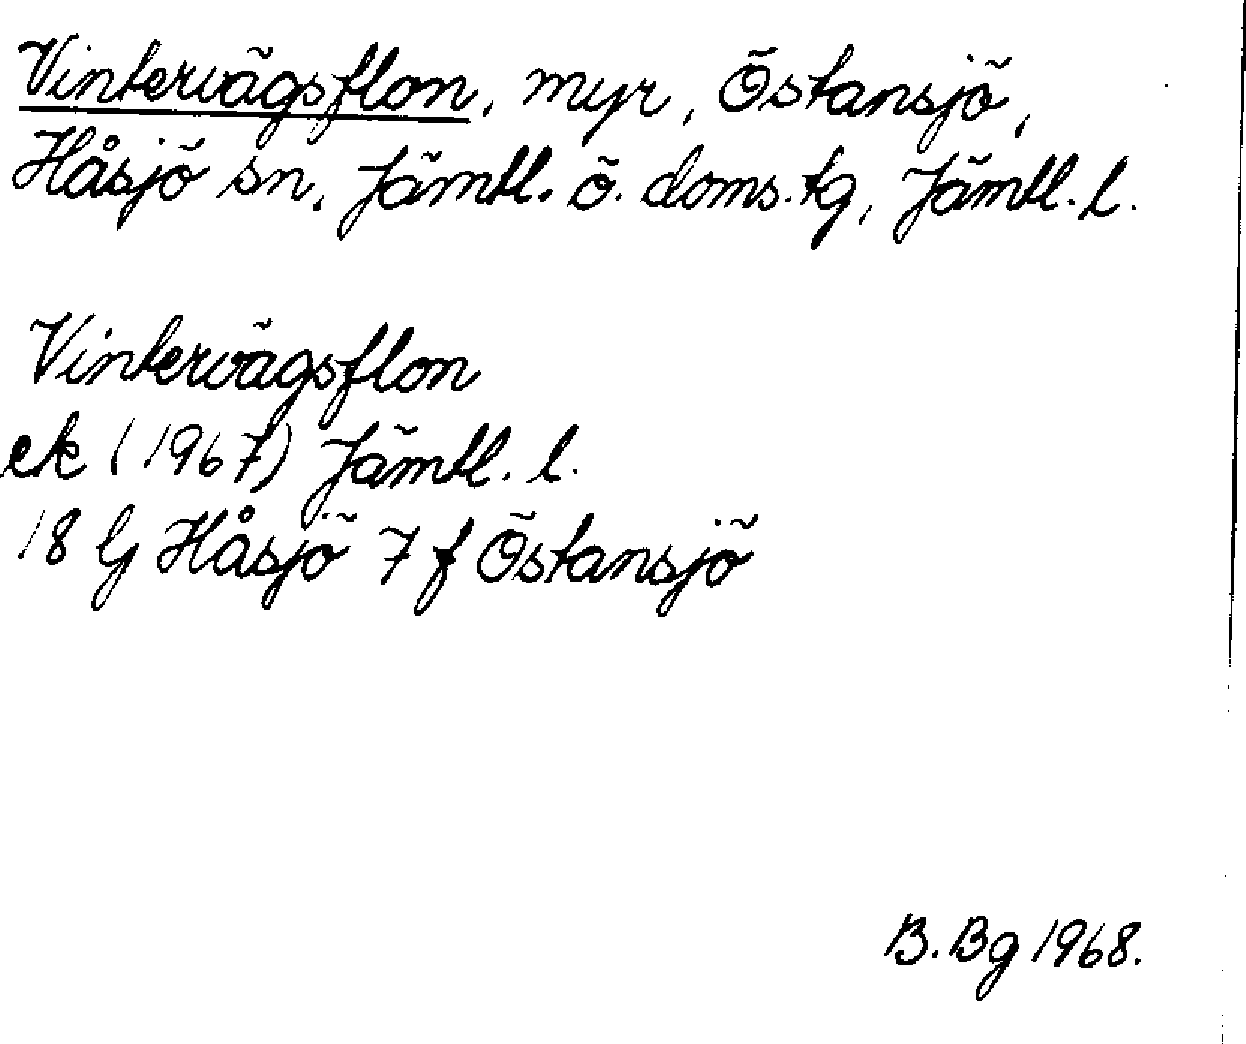 Vintervägsflon, myr, Östansjö,
Håsjö sn, Jämtl. ö. doms.tg, Jämtl. l.
Vintervägsflon
ek (1967) Jämtl. l.
18 G Håsjö 7 f Östansjö
B. Bg 1968.